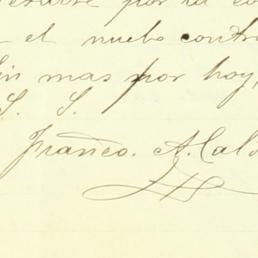 por la
el nuebo contr
Sin mas por hoy,
S. S.
Franco. A. Cal